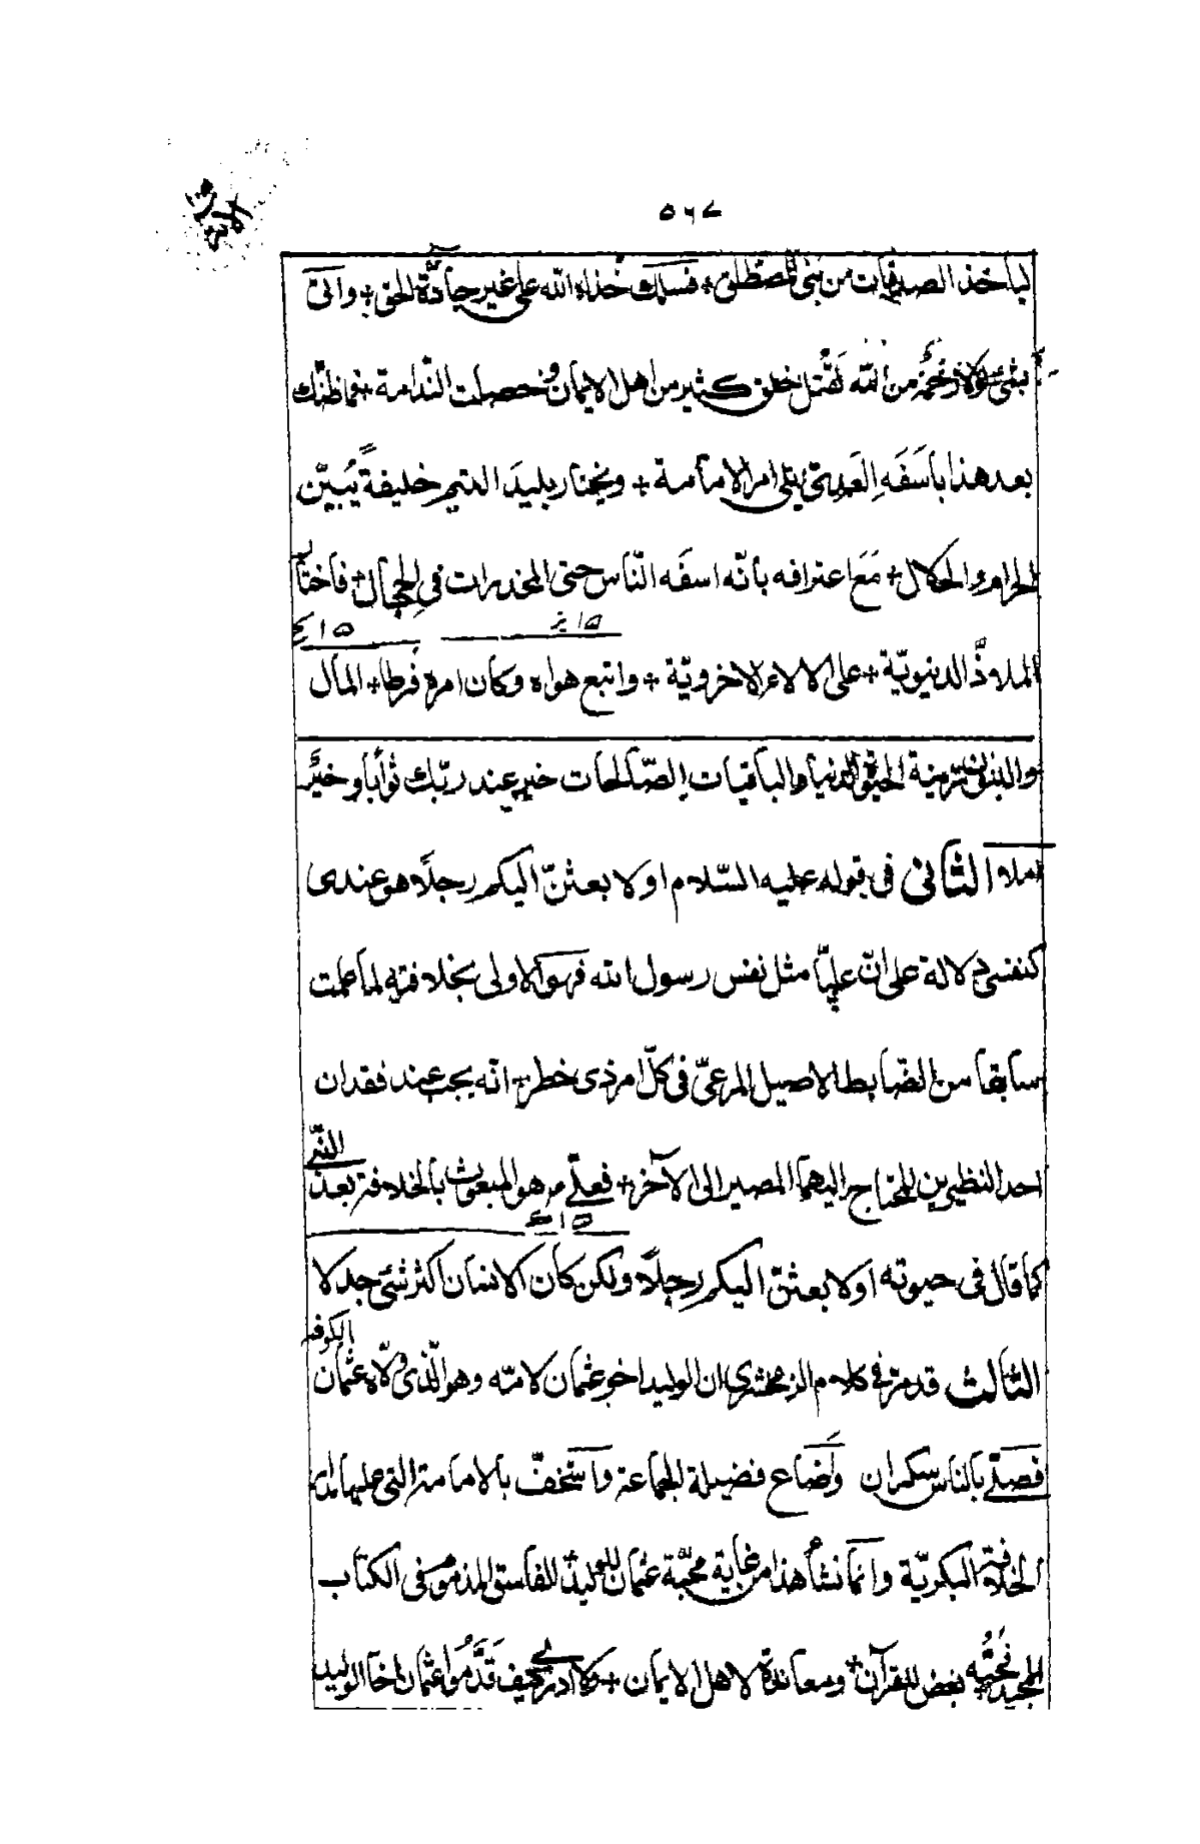 ٥٦٧
لياخذ الصدقات من بنى المصطلق + فسلك خذله الله على غير جادّة الحق + واتى
بشئ لولا رحمة من الله لقُتل خلق كثير من اهل الايمان وحصلت النّدامة + فما ظنّك
بعد هذا باَسفَهِ العَدِىّ يلى امر الامامة + ويختار بليدَ التيم خليفةً يُبيّن
الحرام والحلال + مَعَ اعترافه بانّه اسفَه النّاس حتى المخدرات فى الحِجال + فاختار
١٥ يز
١٥ ع
الملاذّ الدنيويّة + على الالاء الاخرويّة + واتبع هواه وكان امره فُرطا + المال
والبنون زينة الحيوة الدنيا والباقيات الصّالحات خير عند ربّك ثوابا وخيرٌ
املا الثانى فى قوله عليه السّلام او لابعثنّ اليكم رجلًا هو عندى
كنفسى دلالة على انّ عليّا مثل نفس رسول الله فهو الاولى بخلافته لما علمت
سابقا من الضّابط الاصيل المرعىّ فى كلّ امر ذى خطر + انّه يجب عند فقدان
احد النظيرين المحتاج اليهما المصير الى الآخر + فعلىّ هو المبعوث بالخلافة بعد النّبىّ
١٥
كما قال فى حيوته او لابعثنّ اليكم رجلًا ولكن كان الانسان اكثر شئ جدلا
الثالث قد مرّ فى كلام الزمخشرى ان الوليد اخو عثمان لامّه وهو الّذى ولّاه عثمان الكوفة
فصلّى بالناس سكران وَاضاع فضيلة الجماعة واستخفّ بالامامة التى عليها مدار
الخلافة البكريّة وانّما نشأ هذا من غاية محبّة عثمان للوليد الفاسق المذموم فى الكتاب
المجيد فحُبُّه بغض للقرآن + ومعاندة لاهل الايمان + ولا ادرى كيف قَدَّمُوا عثمان اخا الوليد